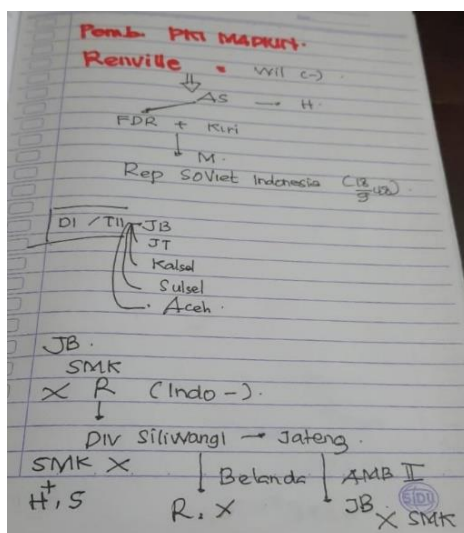 Pemb. PKI MADIUN.
Renville • Wil (-).
⇓
AS → H.
FDR + Kiri
↓ M.
Rep Soviet Indonesia (18/9 48).
DI / TII JB
JT
Kalsel
Sulsel
Aceh.
JB.
SMK
X R (Indo -).
↓
DIV Siliwangi → Jateng.
SMK X
+
H, S
↓ Belanda
R. X
↓ AMB II
JB
X SMK
SIDU